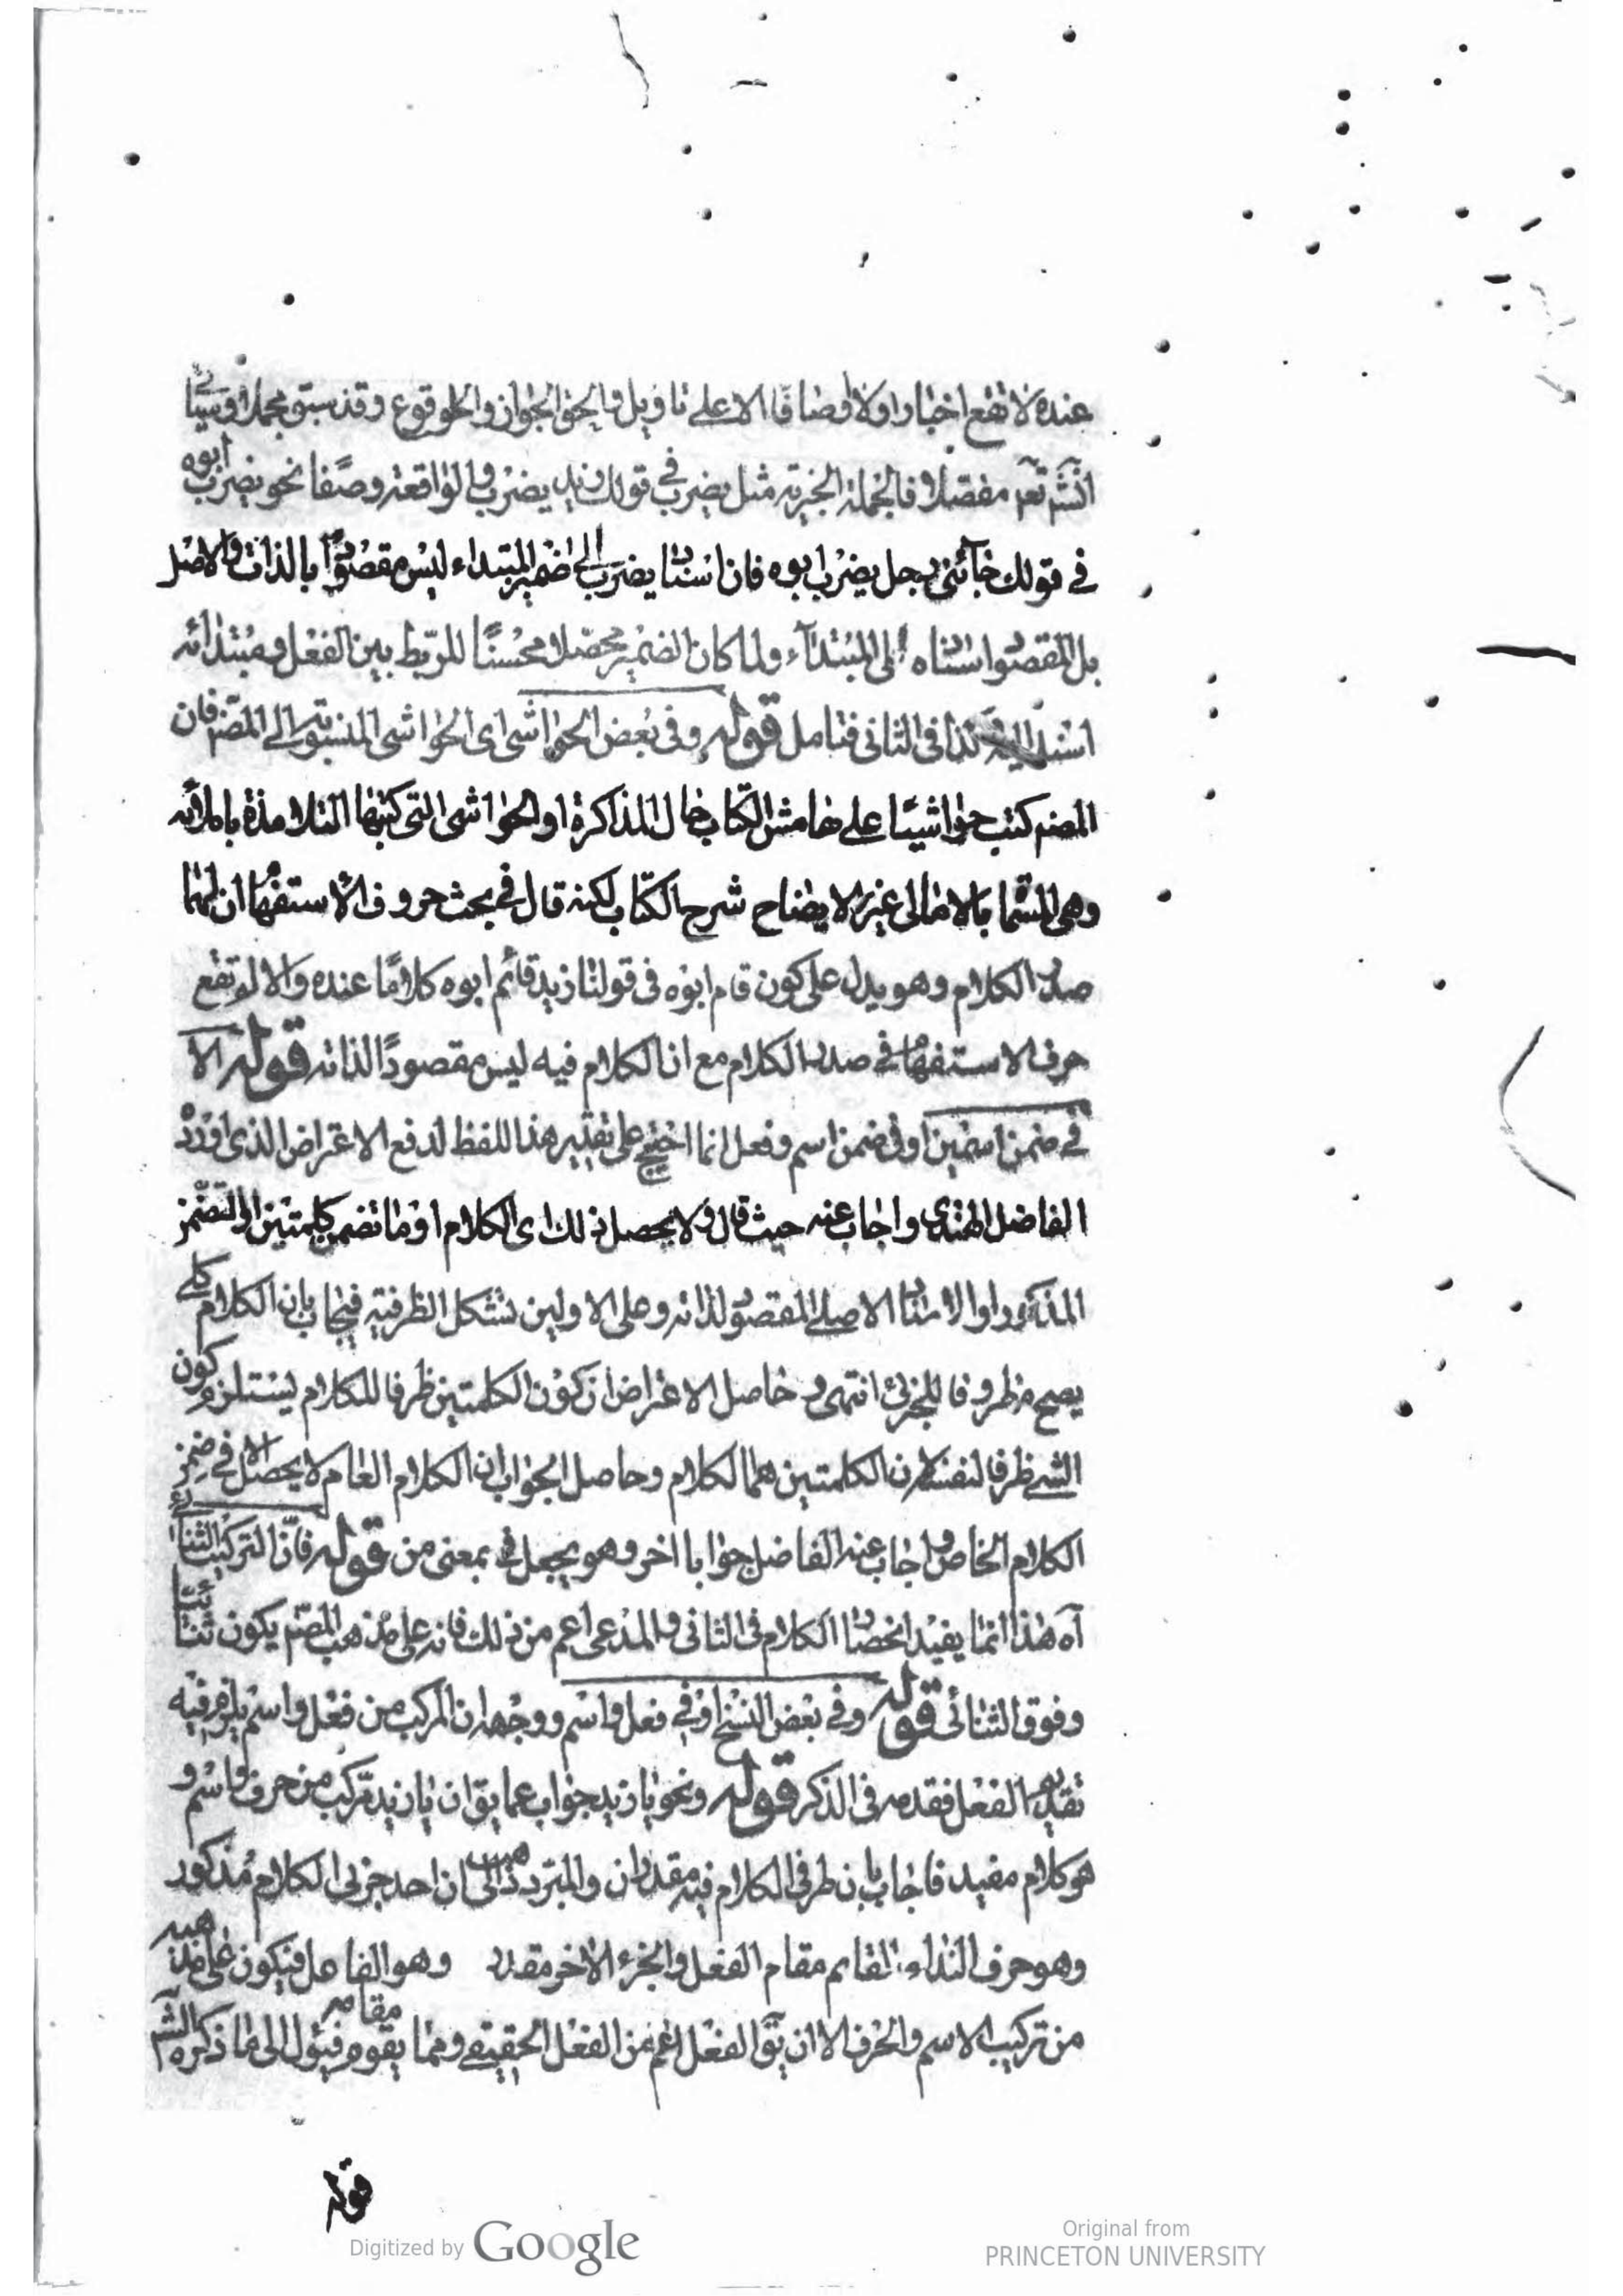 عنده لا تقع اخبارا ولا اوصافا الا على تاويل والحق الجواز والوقوع وقد سبق مجملا وسيأتي
انشـ تعـ مفصلا فالجملة الخبرية مثل يضرب في قولك زيد يضرب والواقعة وصفا نحو يضرب ابوه
في قولك جائني رجل يضرب ابوه فان اسناد يضرب الى ضمير المبتداء ليس مقصودا بالذات والاصل
بل المقصود اسناده الى المبتدآء ولما كان الضمير محصلا محسنا للربط بين الفعل ومبتدائه
اسند اليه كذا في الثاني فتامل قوله وفي بعض الحواشي اى الحواشي المنسوبة الى المصنم فان
المصنم كتب حواشيا على هامش الكتاب حال المذاكرة او الحواشي التي كتبها التلامذة باملائه
وهي المسما بالامالي غير الايضاح شرح الكتاب لكنه قال في بحث حروف الاستفهام ان لهما
صدر الكلام وهو يدل على كون قام ابوه في قولنا زيد قائم ابوه كلاما عنده والا لم تقع
حرف الاستفهام في صدر الكلام مع ان الكلام فيه ليس مقصودا لذاته قوله الا
في ضمن اسمين او في ضمن اسم وفعل انما احتيج على تقدير هذا اللفظ لدفع الاعتراض الذى اورده
الفاضل الهندى واجاب عنه حيث قال ولا يحصل ذلك اى الكلام او ما تضمن كلمتين او التضمن
المذكور او الاسناد الاصلي المقصود لذاته وعلى الاولين تشكل الظرفية فيجاب بان الكلام كلي
يصح مظروفا للجزئي انتهى وحاصل الاعتراض ان كون الكلمتين ظرفا للكلام يستلزم كون
الشي ظرفا لنفسه لان الكلمتين هما الكلام وحاصل الجواب ان الكلام العام لا يحصل الا في ضمن
الكلام الخاص واجاب عنه الفاضل جوابا اخر وهو يجعل في بمعنى من قوله فان التركيب الثنائي
آه هذا انما يفيد انحصار الكلام في الثاني والمدعى اعم من ذلك فانه على مذهب المصنم يكون ثنائيا
وفوق الثنائي قوله وفي بعض النسخ او في فعل واسم ووجهه ان المركب من فعل واسم يلزم فيه
تقديم الفعل فقدمه في الذكر قوله ونحو يا زيد جواب عما يق ان يا زيد مركب من حرف واسم و
هو كلام مفيد فاجاب بان طرفي الكلام فيه مقدران والمبرد ذهب الى ان احد جزئي الكلام مذكور
وهو حرف النداء القايم مقام الفعل والجزء الاخر مقدر وهو الفاعل فيكون على مذهبه
من تركيب الاسم والحرف الا ان يق الفعل اعم من الفعل الحقيقي ومما يقوم مقامه فيئول الى ما ذكره الشـ
قوله
Digitized by Google
Original from
PRINCETON UNIVERSITY